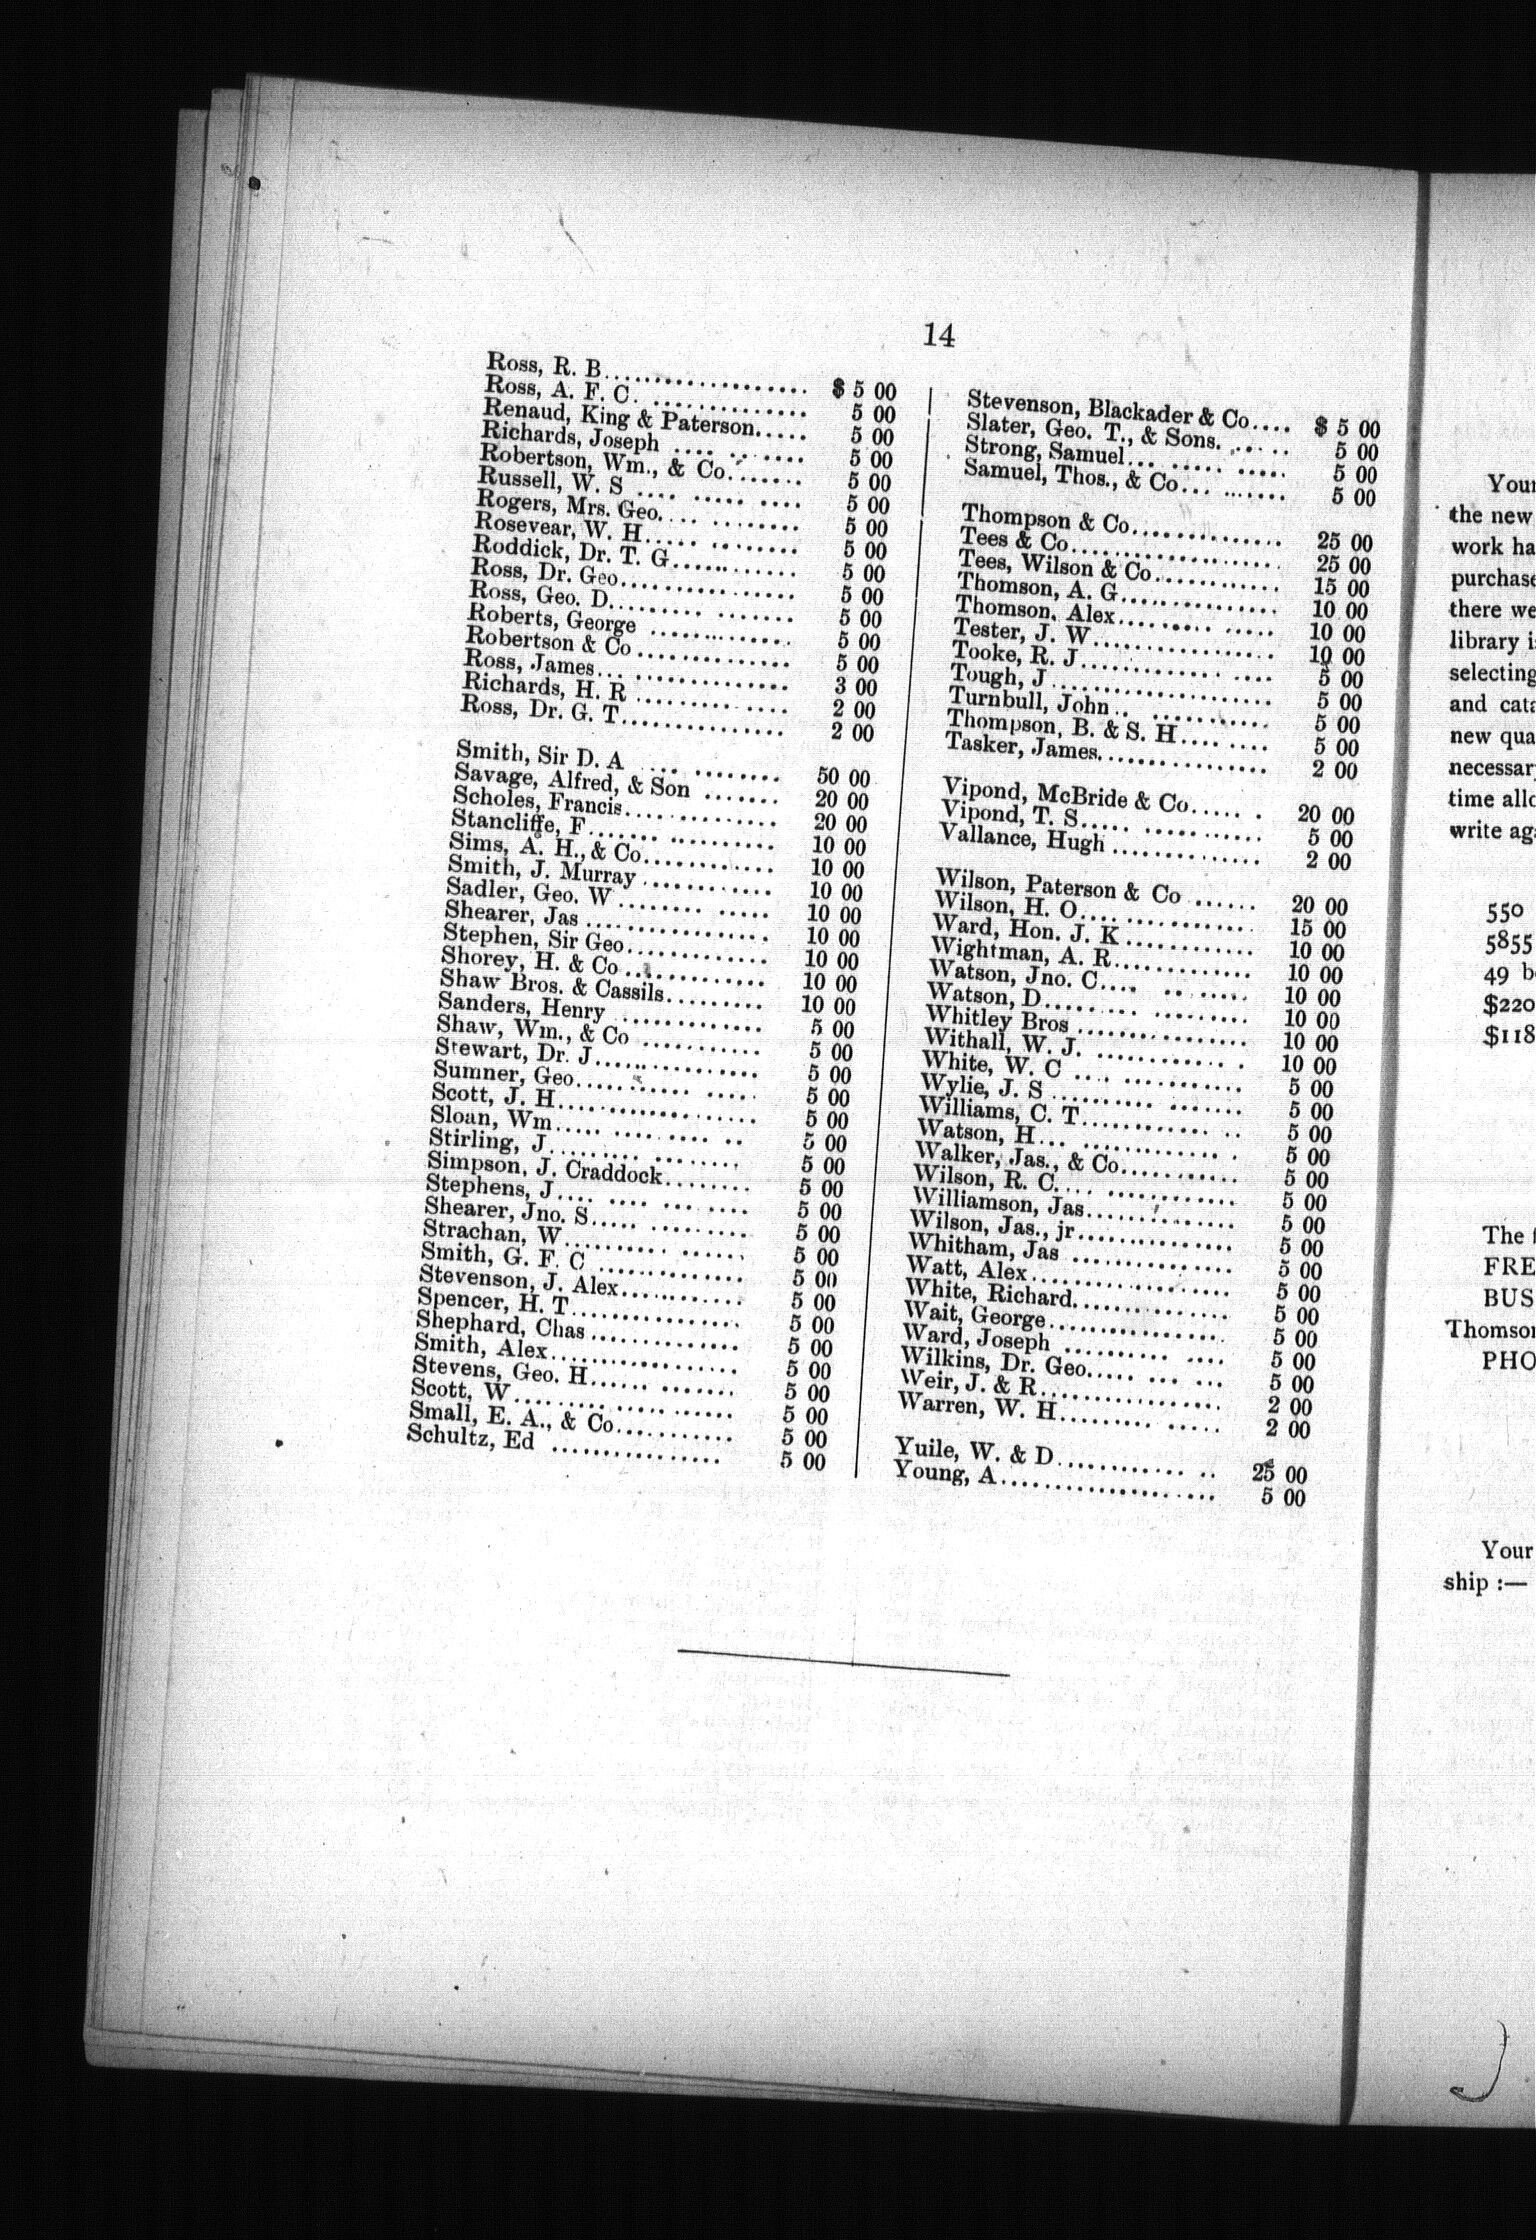 14
Ross, R. B. $ 5 00
Ross, A. F. C. 5 00
Renaud, King & Paterson. 5 00
Richards, Joseph 5 00
Robertson, Wm., & Co. 5 00
Russell, W. S 5 00
Rogers, Mrs. Geo. 5 00
Rosevear, W. H. 5 00
Roddick, Dr. T. G. 5 00
Ross, Dr. Geo. 5 00
Ross, Geo. D. 5 00
Roberts, George 5 00
Robertson & Co 5 00
Ross, James 3 00
Richards, H. R 2 00
Ross, Dr. G. T. 2 00
Smith, Sir D. A 50 00
Savage, Alfred, & Son 20 00
Scholes, Francis 20 00
Stancliffe, F. 10 00
Sims, A. H., & Co. 10 00
Smith, J. Murray 10 00
Sadler, Geo. W 10 00
Shearer, Jas 10 00
Stephen, Sir Geo. 10 00
Shorey, H. & Co 10 00
Shaw Bros. & Cassils. 10 00
Sanders, Henry 5 00
Shaw, Wm., & Co 5 00
Stewart, Dr. J. 5 00
Sumner, Geo. 5 00
Scott, J. H. 5 00
Sloan, Wm. 5 00
Stirling, J. 5 00
Simpson, J. Craddock. 5 00
Stephens, J. 5 00
Shearer, Jno. S. 5 00
Strachan, W. 5 00
Smith, G. F. C 5 00
Stevenson, J. Alex. 5 00
Spencer, H. T. 5 00
Shephard, Chas 5 00
Smith, Alex. 5 00
Stevens, Geo. H. 5 00
Scott, W. 5 00
Small, E. A., & Co. 5 00
Schultz, Ed 5 00
Stevenson, Blackader & Co. $ 5 00
Slater, Geo. T., & Sons. 5 00
Strong, Samuel 5 00
Samuel, Thos., & Co. 5 00
Thompson & Co. 25 00
Tees & Co. 25 00
Tees, Wilson & Co. 15 00
Thomson, A. G. 10 00
Thomson, Alex. 10 00
Tester, J. W. 10 00
Tooke, R. J. 5 00
Tough, J. 5 00
Turnbull, John 5 00
Thompson, B. & S. H. 5 00
Tasker, James. 2 00
Vipond, McBride & Co. 20 00
Vipond, T. S. 5 00
Vallance, Hugh 2 00
Wilson, Paterson & Co 20 00
Wilson, H. O. 15 00
Ward, Hon. J. K 10 00
Wightman, A. R. 10 00
Watson, Jno. C. 10 00
Watson, D. 10 00
Whitley Bros 10 00
Withall, W. J. 10 00
White, W. C 5 00
Wylie, J. S 5 00
Williams, C. T. 5 00
Watson, H. 5 00
Walker, Jas., & Co. 5 00
Wilson, R. C. 5 00
Williamson, Jas. 5 00
Wilson, Jas., jr. 5 00
Whitham, Jas 5 00
Watt, Alex. 5 00
White, Richard. 5 00
Wait, George 5 00
Ward, Joseph 5 00
Wilkins, Dr. Geo. 5 00
Weir, J. & R. 2 00
Warren, W. H. 2 00
Yuile, W. & D. 25 00
Young, A. 5 00
the new
work
purchase
there
library
selecting
and
new
time
write
550
5855
49
The
ship :—